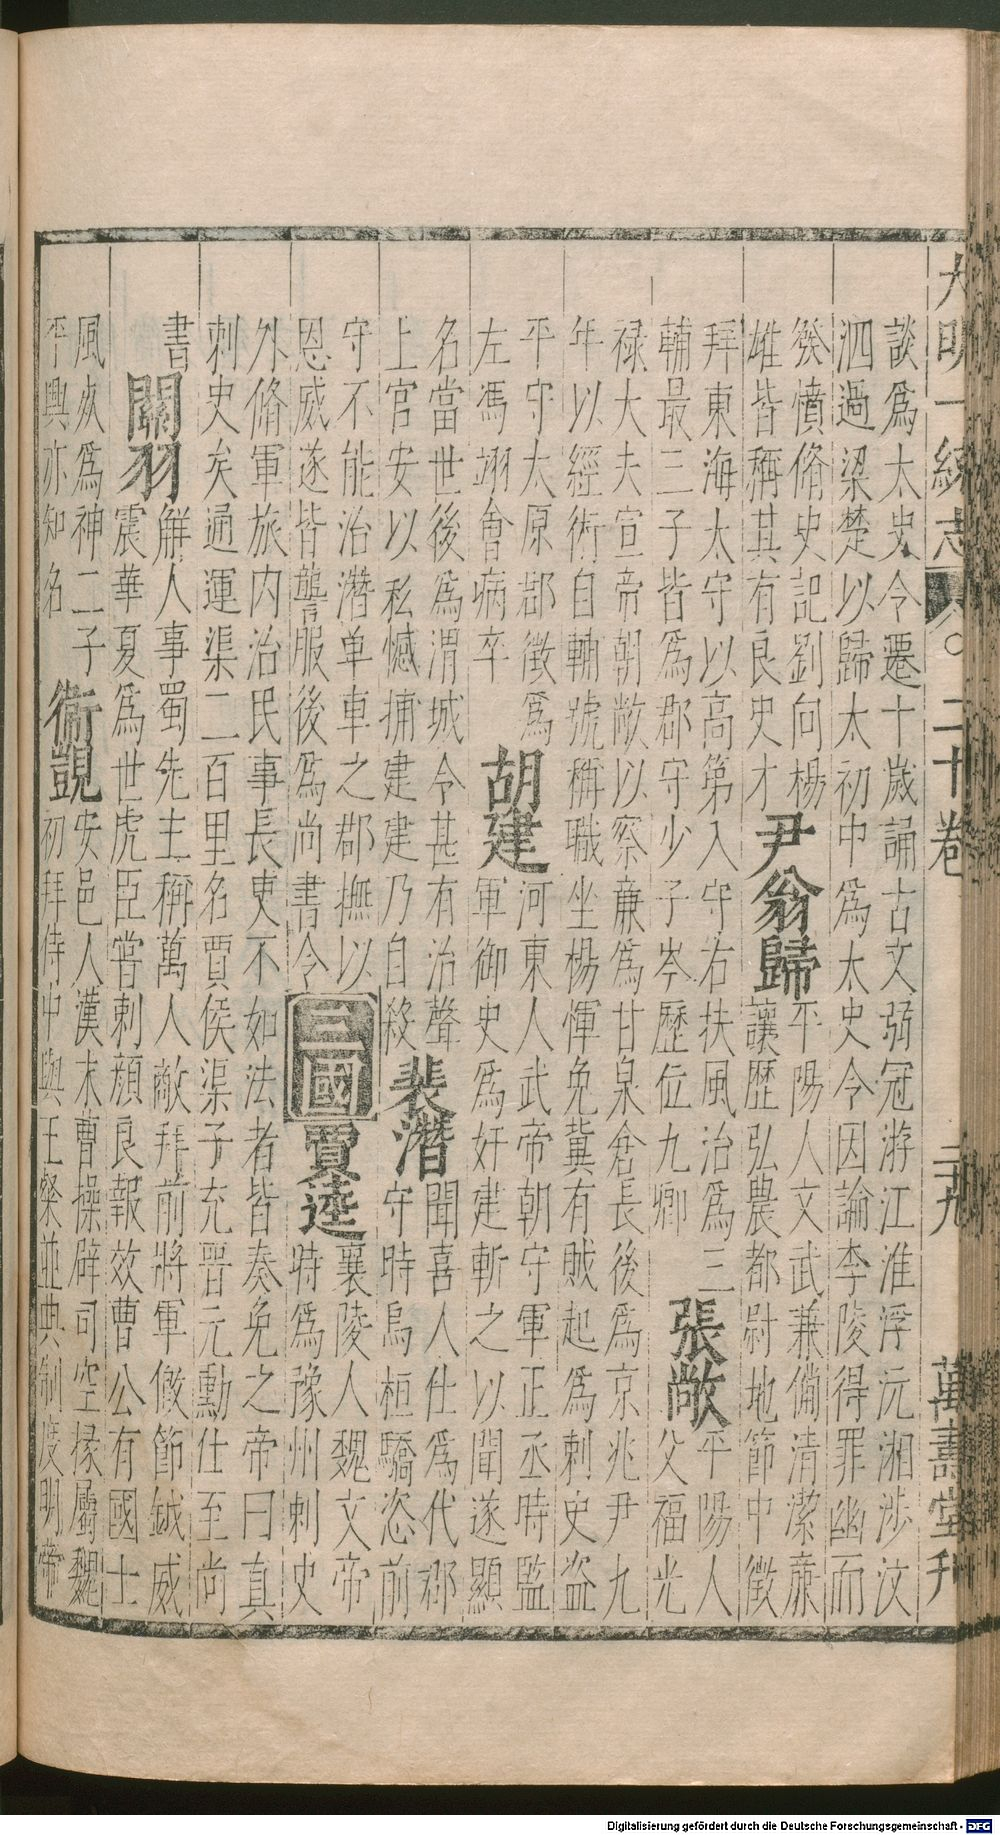 大明一統志 二十卷 三十九 萬壽堂刊
談爲太史令遷十歲誦古文弱冠游江淮浮沅湘涉汶
泗過梁楚以歸太初中爲太史令因論李陵得罪幽而
發憤脩史記劉向楊
雄皆稱其有良史才
尹翁歸
平陽人文武兼備清潔亷
讓歷弘農都尉地節中徵
拜東海太守以高第入守右扶風治爲三
輔最三子皆爲郡守少子岑歷位九卿
張敞
平陽人
父福光
禄大夫宣帝朝敞以察亷爲甘泉倉長後爲京兆尹九
年以經術自輔號稱職坐楊惲免冀有賊起爲刺史盗
平守太原郡徵爲
左馮翊會病卒
胡建
河東人武帝朝守軍正丞時監
軍御史爲奸建斬之以聞遂顯
名當世後爲渭城令甚有治聲
上官安以私憾捕建建乃自殺
裴潛
聞喜人仕爲代郡
守時烏桓驕恣前
守不能治潛单車之郡撫以
恩威遂皆讋服後爲尚書令
三國
賈逵
襄陵人魏文帝
時爲豫州刺史
外脩軍旅内治民事長吏不如法者皆奏免之帝曰真
刺史矣通運渠二百里名賈侯渠子充晋元勳仕至尚
書
關羽
解人事蜀先主稱萬人敵拜前將軍假節鉞威
震華夏爲世虎臣嘗刺顔良報效曹公有國士
風殁爲神二子
平興亦知名
衛覬
安邑人漢末曹操辟司空掾屬魏
初拜侍中與王粲並典制度明帝
Digitalisierung gefördert durch die Deutsche Forschungsgemeinschaft - DFG